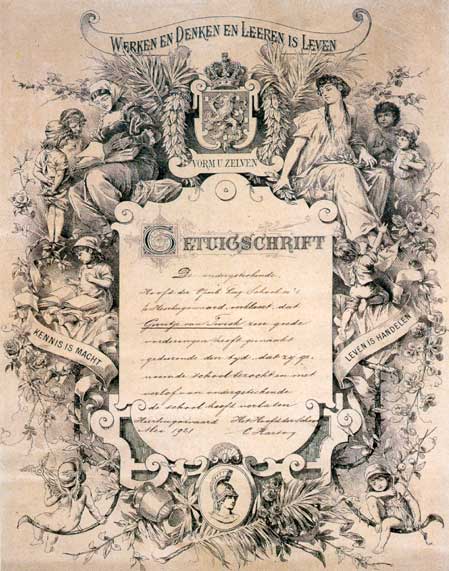 WERKEN EN DENKEN EN LEEREN IS LEVEN
VORM U ZELVEN
GETUIGSCHRIFT
De ondergeteekende
Hoofd der Openb. Lag. School in 's
heerhugowaard, verklaart, dat
Guurtje van Twisk een goede
vorderingen heeft gemaakt
gedurende den tijd, dat zij ge-
noemde school bezocht en met
verlof van ondergeteekende
de school heeft verlaten
Heerhugowaard Het Hoofd der School
Mei 1921 C Hartog
KENNIS IS MACHT
LEVEN IS HANDELEN